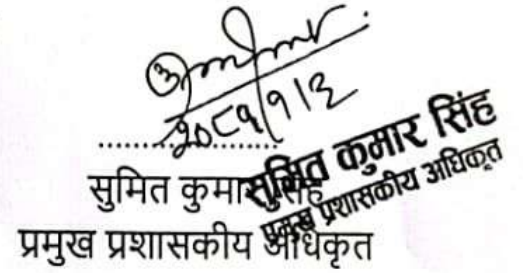 २०८१/१/३
सुमित कुमार सिंह
प्रमुख प्रशासकीय अधिकृत
सुमित कुमार सिंह
प्रमुख प्रशासकीय अधिकृत